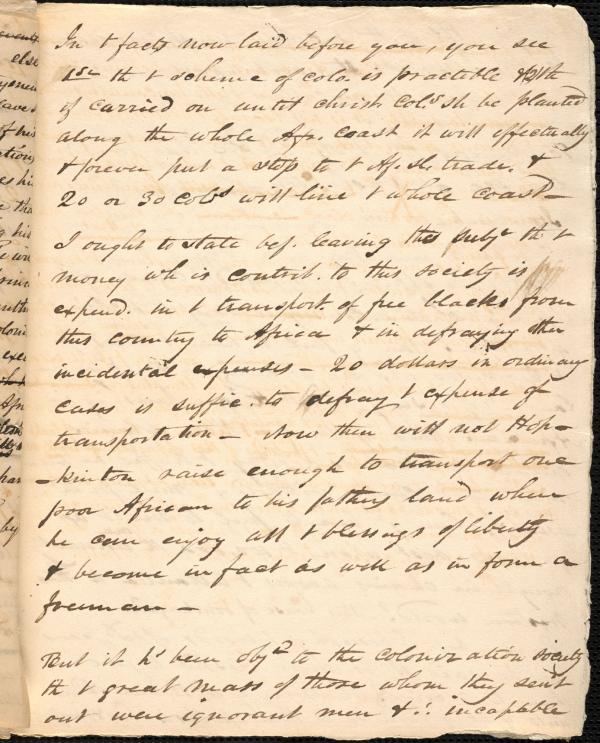 In t facts now laid before you, you see
1st th t scheme of colo. is practible & 2th
if carried on until christ. Colos sh be planted
along the whole Afr. coast it will effectually
& forever put a stop to t Af. sl. trade. &
20 or 30 colos will line t whole coast –
I ought to state bef. leaving this subjt th t
money wh is contrib. to this society is
expend. in t transport. of free blacks from
this country to Africa & in defraying other
incidental expenses – 20 dollars in ordinary
cases is suffic. to defray t expense of
transportation – Now then will not Hop-
-kinton raise enough to transport one
poor African to his fathers land where
he can enjoy all t blessings of liberty
& become in fact as well as in form a
freeman –
But it hs been objd to the colonization society
th t great mass of those whom they sent
out were ignorant men & .'. incapable